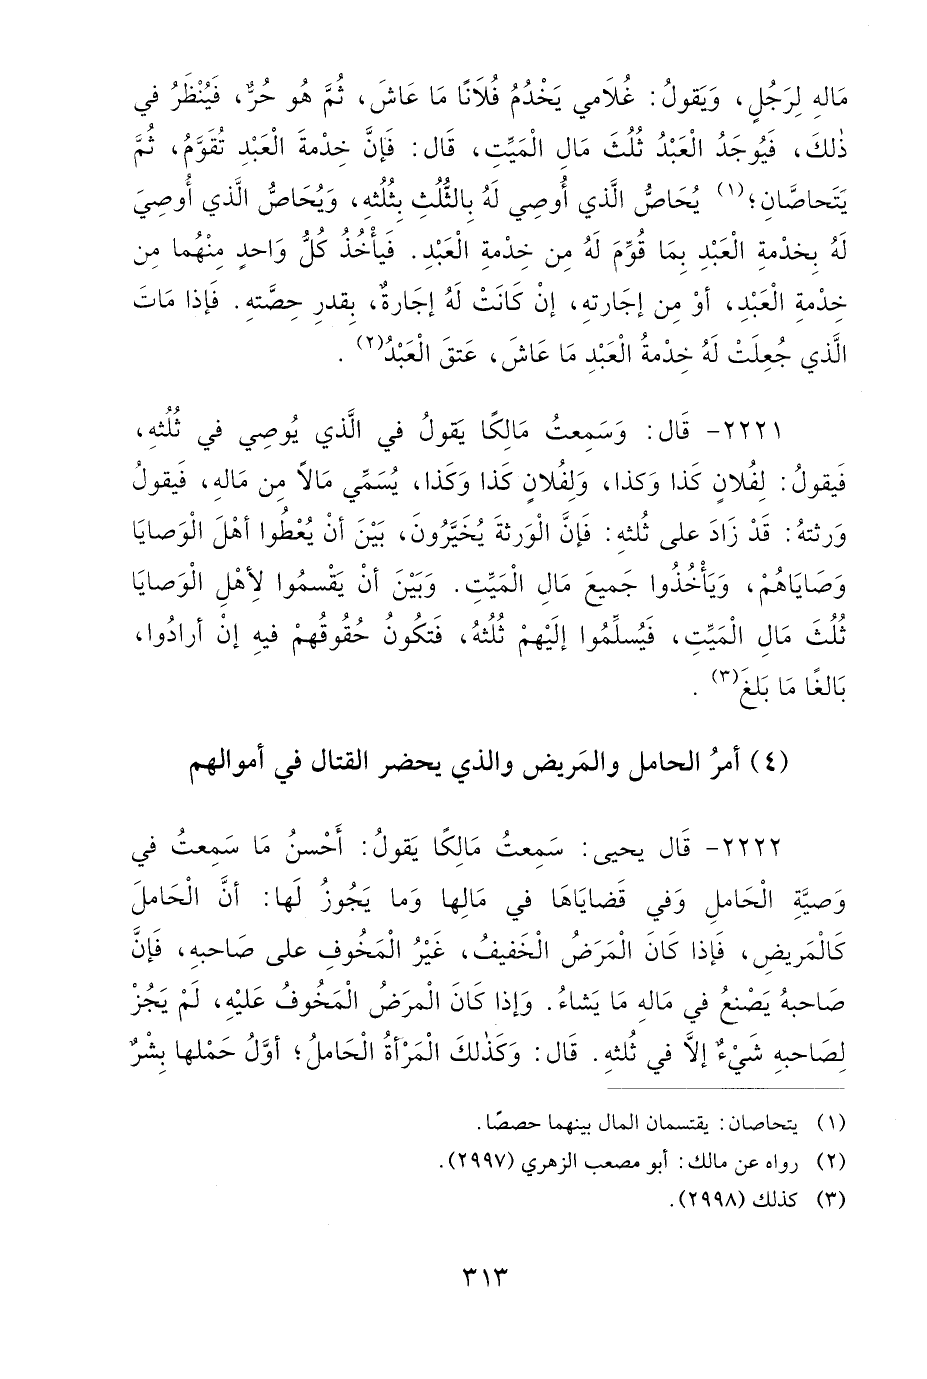 مَالهِ لِرَجُلٍ، وَيَقولُ: غُلَامي يَخْدُمُ فُلَانًا مَا عَاشَ، ثُمَّ هُو حُرٌّ، فَيُنْظَرُ في
ذٰلكَ، فَيُوجَدُ الْعَبْدُ ثُلُثَ مَالِ الْمَيِّتِ، قَال: فَإنَّ خِدْمةَ الْعَبْدِ تُقَوَّمُ، ثُمَّ
يَتَحاصَّان؛(١) يُحَاصُّ الَّذي أُوصِي لَهُ بِالثُّلُثِ بِثُلُثهِ، وَيُحَاصُّ الَّذي أُوصِيَ
لَهُ بِخدْمةِ الْعَبْدِ بِمَا قُوِّمَ لَهُ مِن خِدْمةِ الْعَبْدِ. فَيأْخُذُ كُلُّ وَاحدٍ مِنْهُما مِن
خِدْمةِ الْعَبْدِ، أوْ مِن إجَارتهِ، إنْ كَانَتْ لَهُ إجَارةٌ، بِقدرِ حِصَّتهِ. فَإذا مَاتَ
الَّذي جُعِلَتْ لَهُ خِدْمةُ الْعَبْدِ مَا عَاشَ، عَتقَ الْعَبْدُ(٢).
٢٢٢١- قَال: وَسَمِعتُ مَالِكًا يَقولُ في الَّذي يُوصِي في ثُلُثهِ،
فَيقولُ: لِفُلانٍ كَذا وَكذا، وَلِفُلانٍ كَذا وَكَذا، يُسَمِّي مَالاً مِن مَالهِ، فَيقولُ
وَرثتهُ: قَدْ زَادَ على ثُلثهِ: فَإنَّ الْوَرثةَ يُخَيَّرُونَ، بَيْنَ أنْ يُعْطُوا أهْلَ الْوَصايَا
وَصَايَاهُمْ، وَيَأْخُذُوا جَميعَ مَالِ الْمَيِّتِ. وَبَيْنَ أنْ يَقْسمُوا لِأهْلِ الْوَصايَا
ثُلُثَ مَالِ الْمَيِّتِ، فَيُسلِّمُوا إلَيْهِمْ ثُلُثهُ، فَتكُونُ حُقُوقُهمْ فيهِ إنْ أرادُوا،
بَالغًا مَا بَلغَ(٣).
(٤) أمرُ الحامل والمَريض والذي يحضر القتال في أموالهم
٢٢٢٢- قَال يحيى: سَمِعتُ مَالِكًا يَقولُ: أَحْسنُ مَا سَمِعتُ في
وَصيَّةِ الْحَاملِ وَفي قَضايَاهَا في مَالِها وَما يَجُوزُ لَها: أنَّ الْحَاملَ
كَالْمَريضِ، فَإذا كَانَ الْمَرَضُ الْخَفيفُ، غَيْرُ الْمَخُوفِ على صَاحبهِ، فَإنَّ
صَاحبهُ يَصْنعُ في مَالهِ مَا يَشاءُ. وَإذا كَانَ الْمَرضُ الْمَخُوفُ عَليْهِ، لَمْ يَجُزْ
لِصَاحبهِ شَيْءٌ إلاَّ في ثُلثهِ. قَال: وَكَذٰلكَ الْمَرْأةُ الْحَاملُ؛ أوَّلُ حَمْلها بِشْرٌ
(١) يتحاصان: يقتسمان المال بينهما حصصًا.
(٢) رواه عن مالك: أبو مصعب الزهري (٢٩٩٧).
(٣) كذلك (٢٩٩٨).
٣١٣